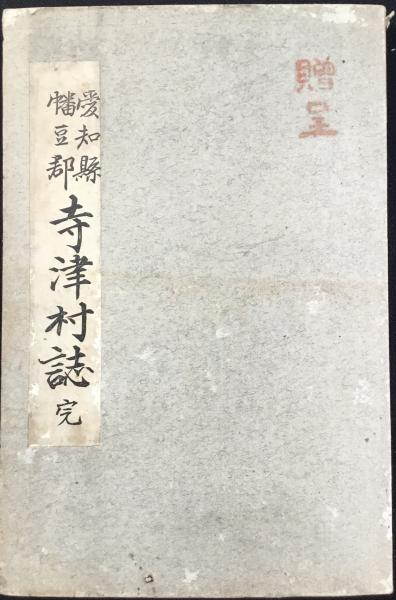 贈呈
愛知縣
幡豆郡
寺津村誌 完